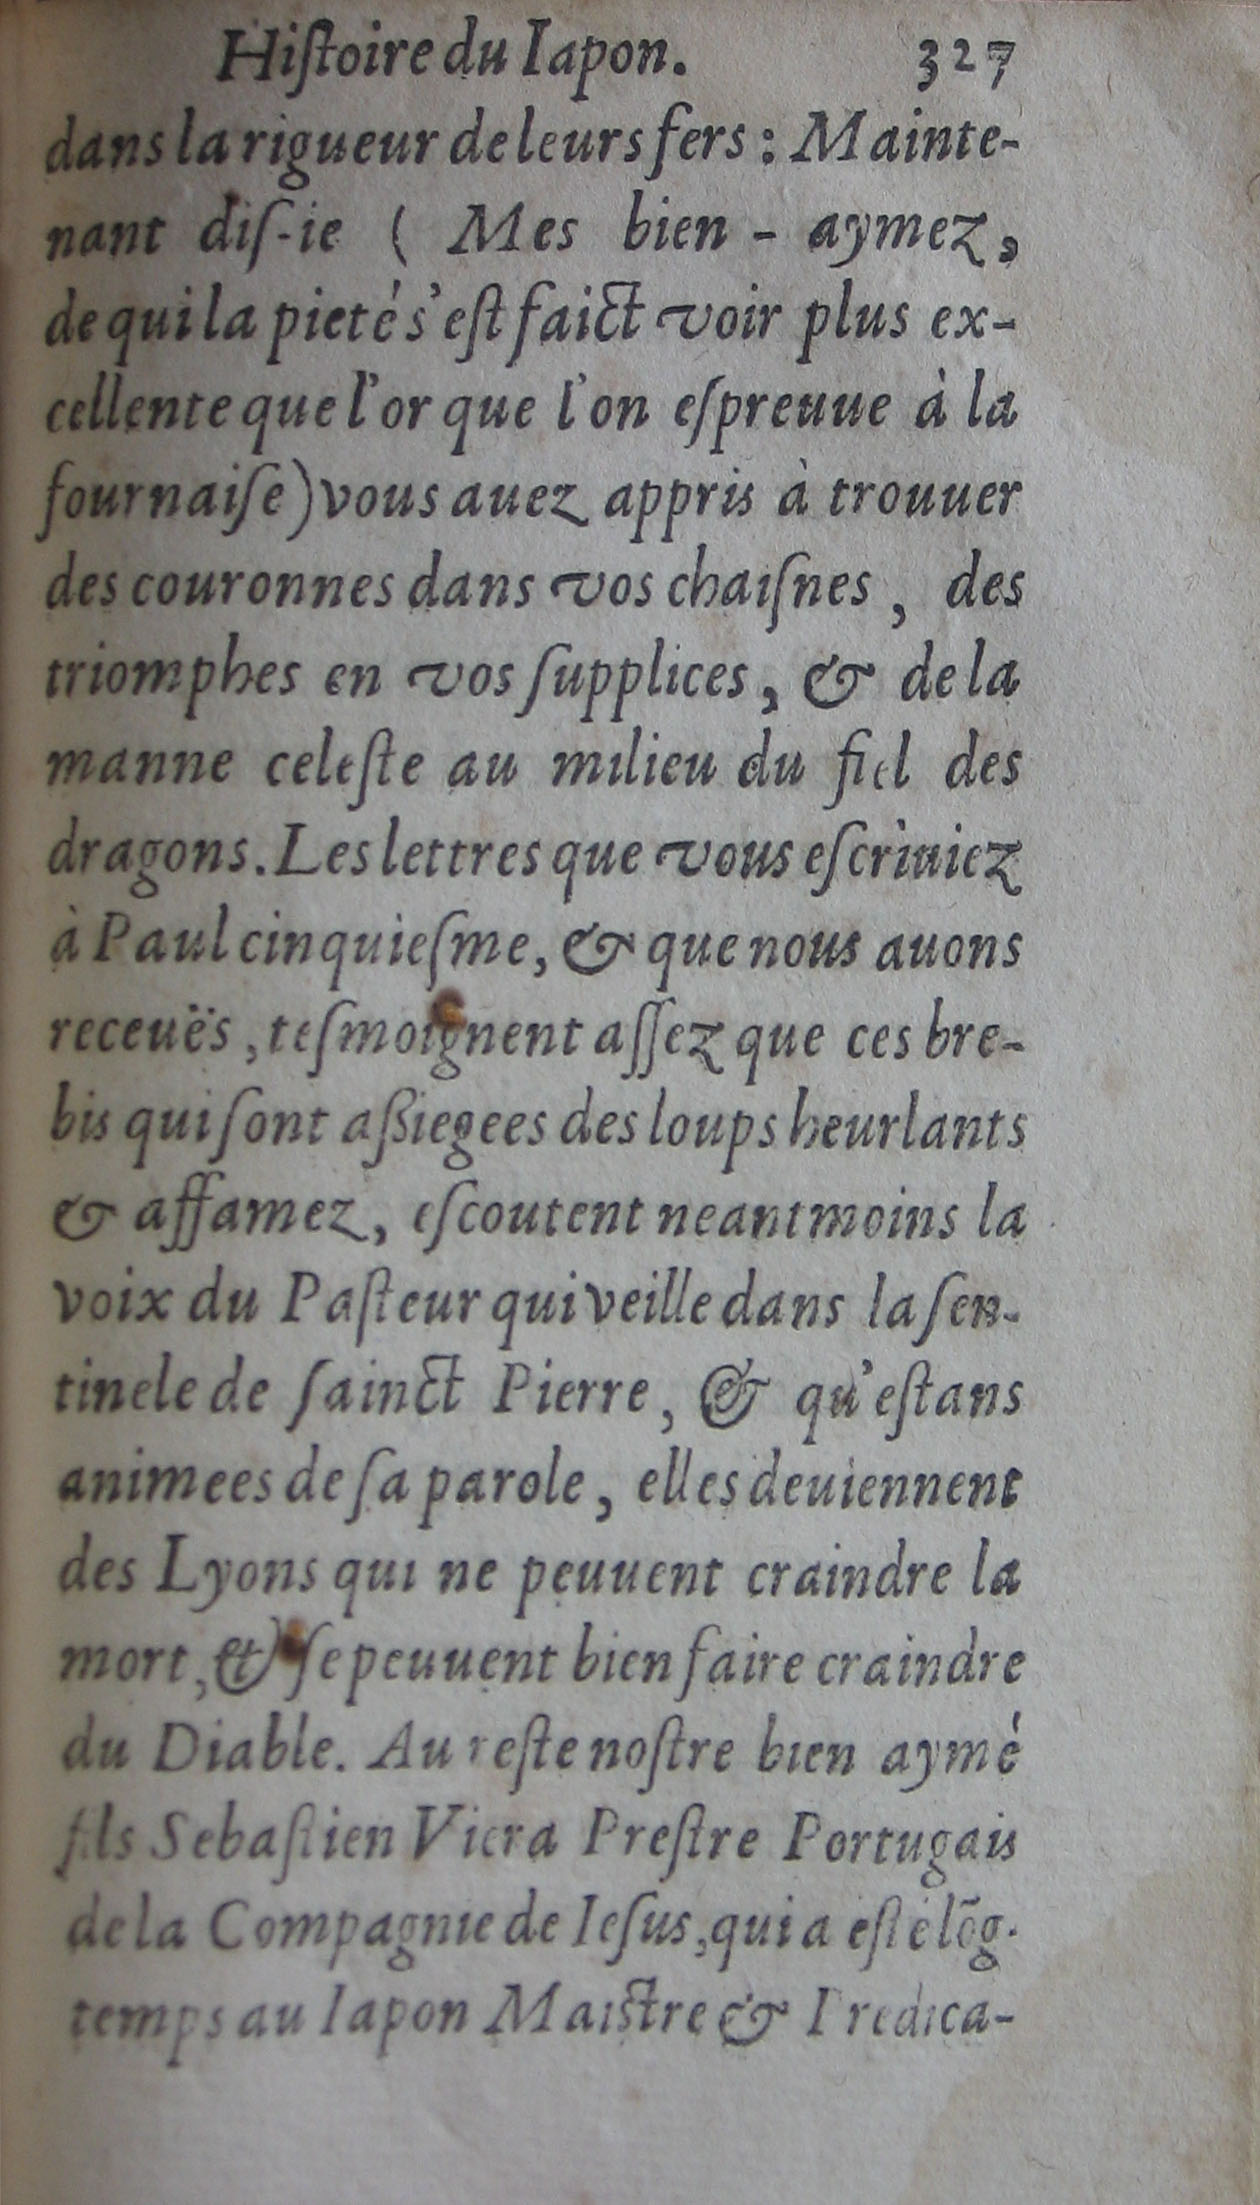 Hiſtoire du Iapon. 327
dans la rigueur de leurs fers : Mainte-
nant diſ-ie ( Mes bien - aymez,
de qui la pieté s'eſt faict voir plus ex-
cellente que l'or que l'on eſpreuue à la
fournaiſe) vous auez appris à trouuer
des couronnes dans vos chaiſnes, des
triomphes en vos ſupplices, & de la
manne celeſte au milieu du fiel des
dragons. Les lettres que vous eſcriuiez
à Paul cinquieſme, & que nous auons
receuës, teſmoignent aſſez que ces bre-
bis qui ſont aßiegees des loups heurlants
& affamez, eſcoutent neantmoins la
voix du Paſteur qui veille dans la ſen-
tinele de ſainct Pierre, & qu'eſtans
animees de ſa parole, elles deuiennent
des Lyons qui ne peuuent craindre la
mort, & ſe peuuent bien faire craindre
du Diable. Au reſte noſtre bien aymé
fils Sebaſtien Viera Preſtre Portugais
de la Compagnie de Ieſus, qui a eſté lõg-
temps au Iapon Maiſtre & Predica-